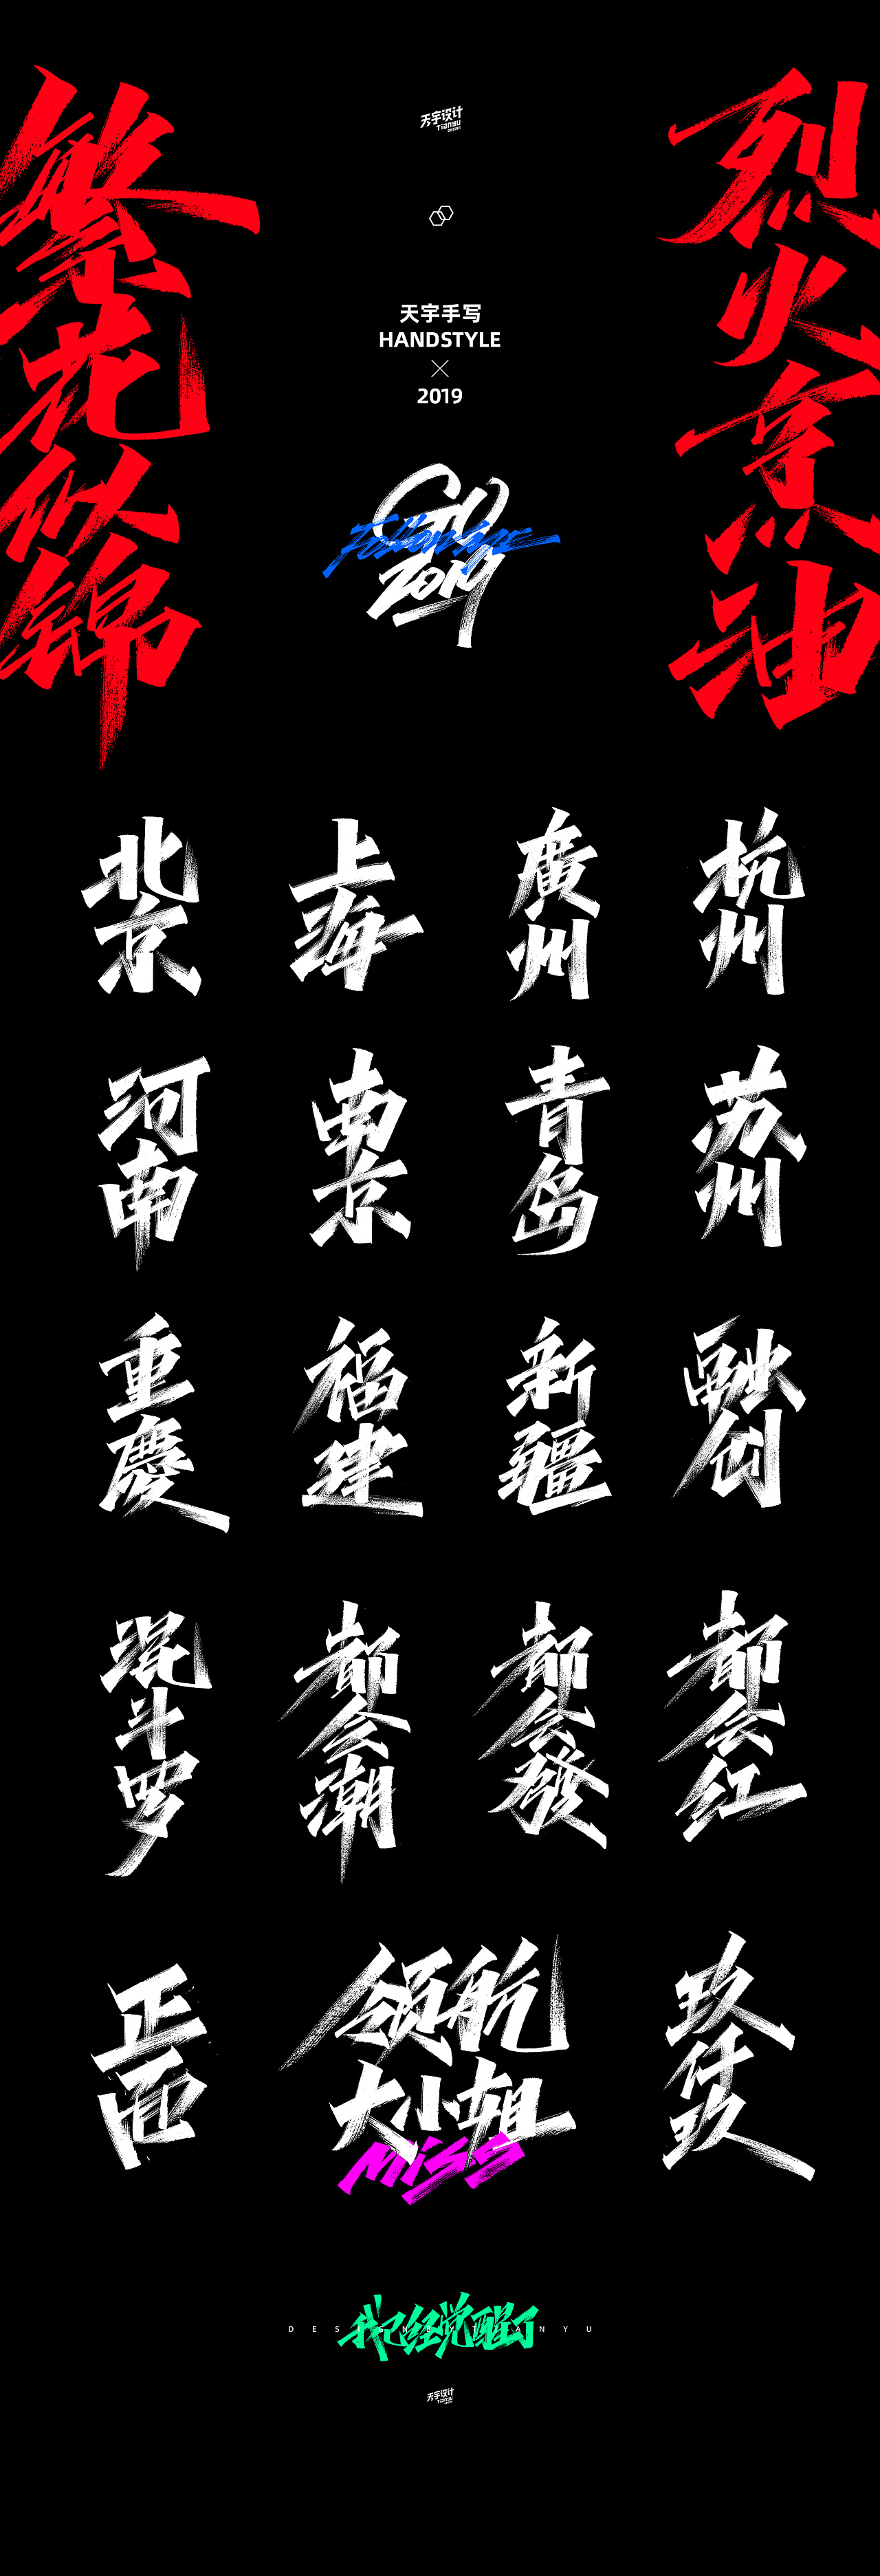 繁花似锦
烈火烹油
天宇设计
Tianyu
DESIGN
天宇手写
HANDSTYLE
2019
GO
Follow me
2019
北京
上海
廣州
杭州
河南
南京
青岛
苏州
重慶
福建
新疆
融创
混斗罗
都会潮
都会發
都会红
正面
领航
大小姐
Miss
玖仟玖
我已经觉醒了
DESIGN BY TIANYU
天宇设计
Tianyu